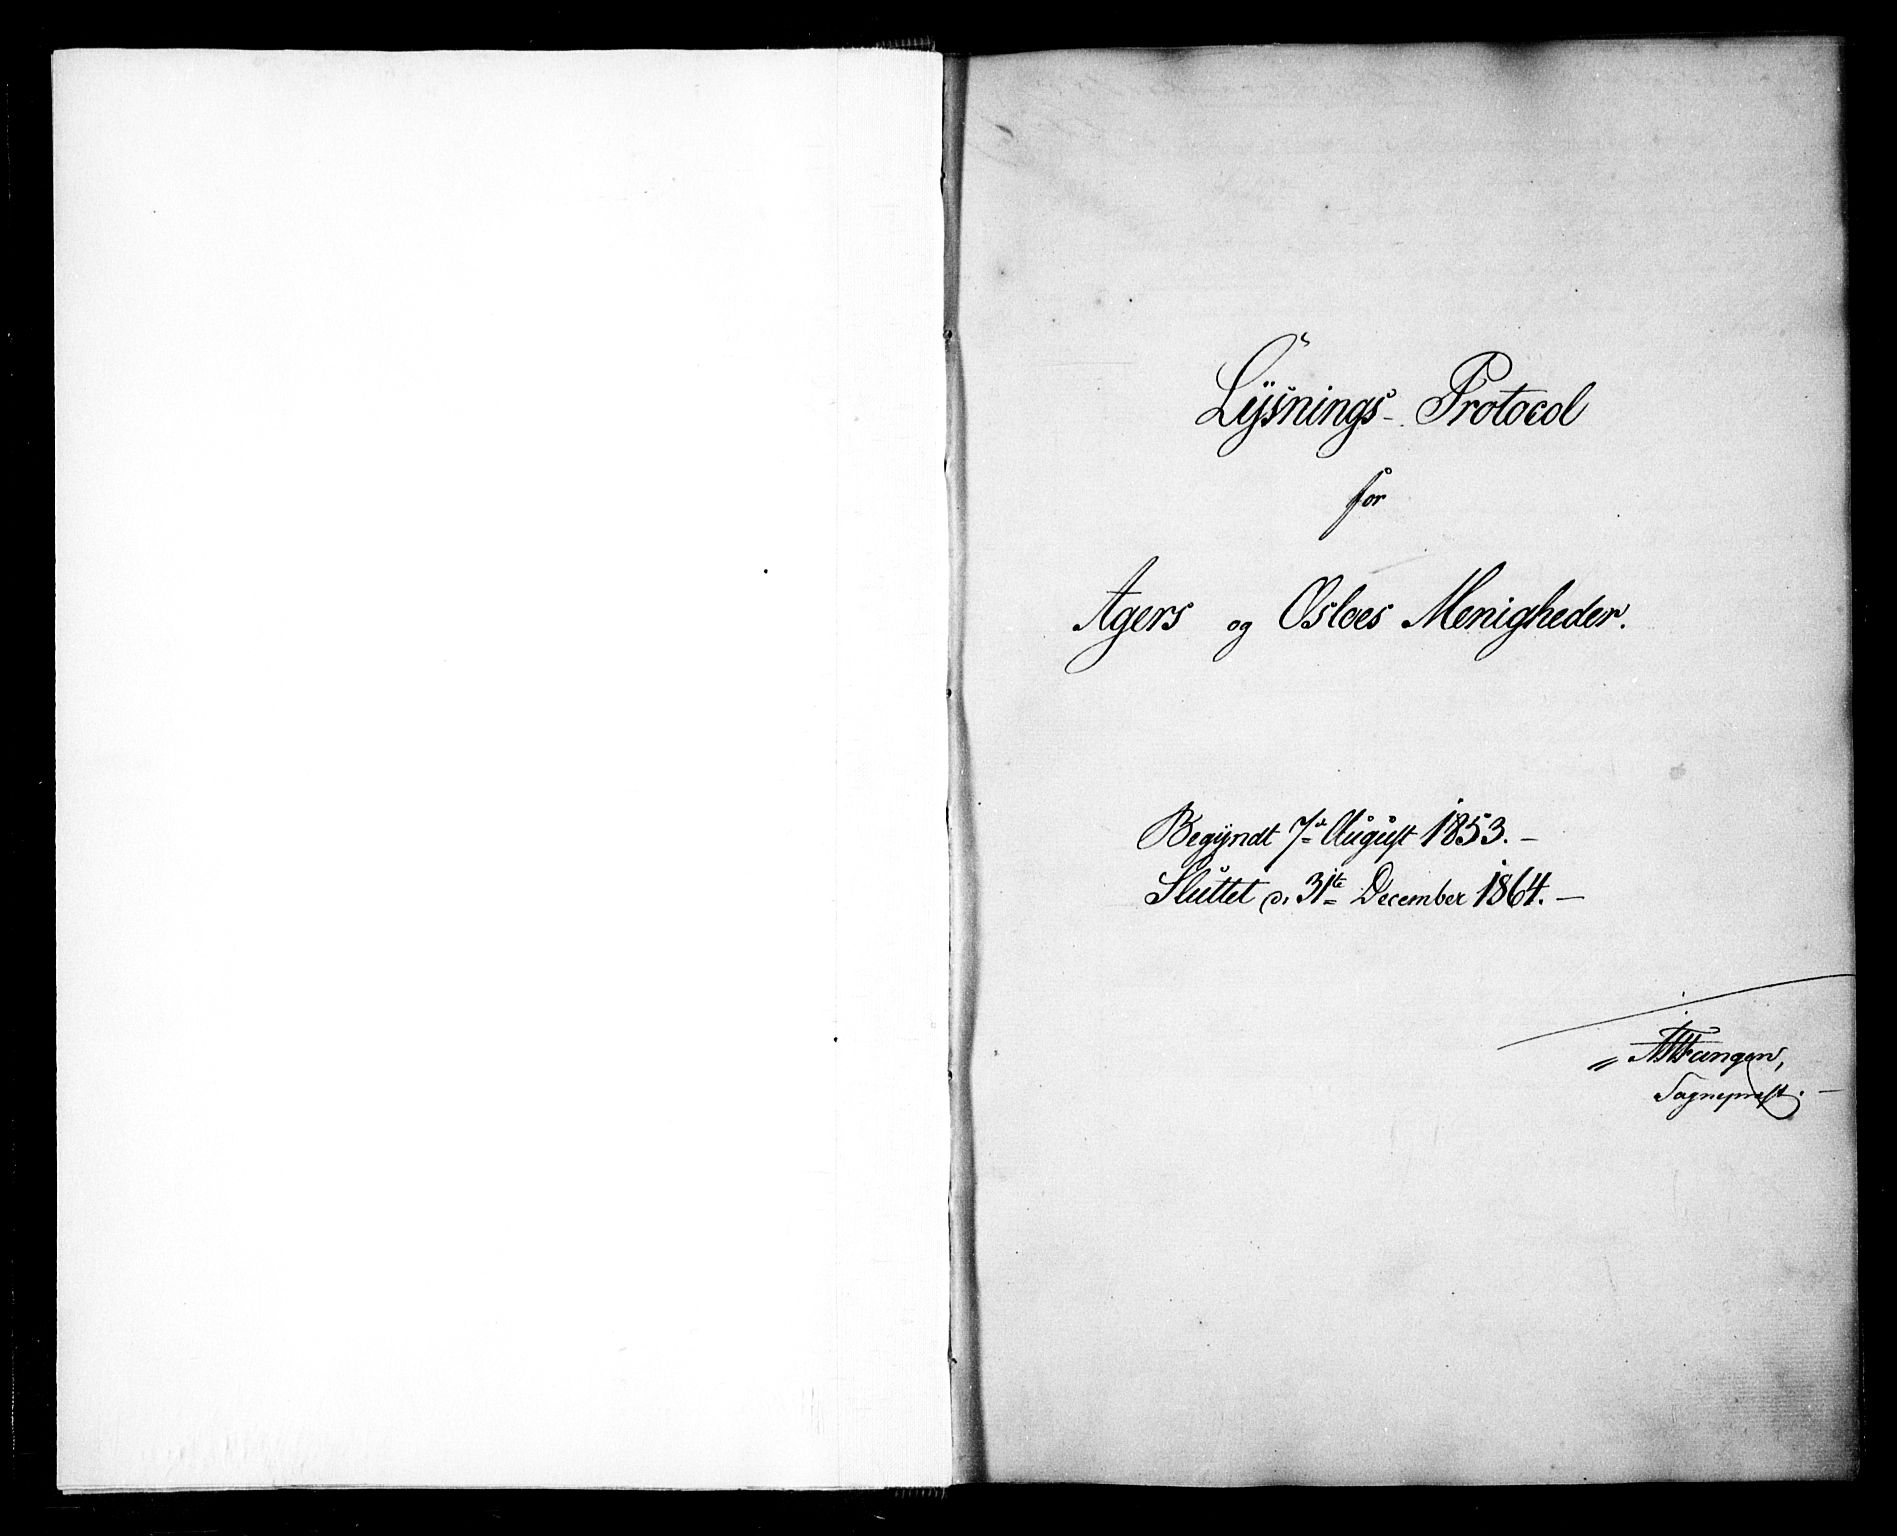 Lÿsnings-Protocol
for
Agers og Osloes Menigheder.
Begÿndt 7de August 1853. –
Sluttet d. 31te December 1864. –
Fangen,
Sognepræst. –